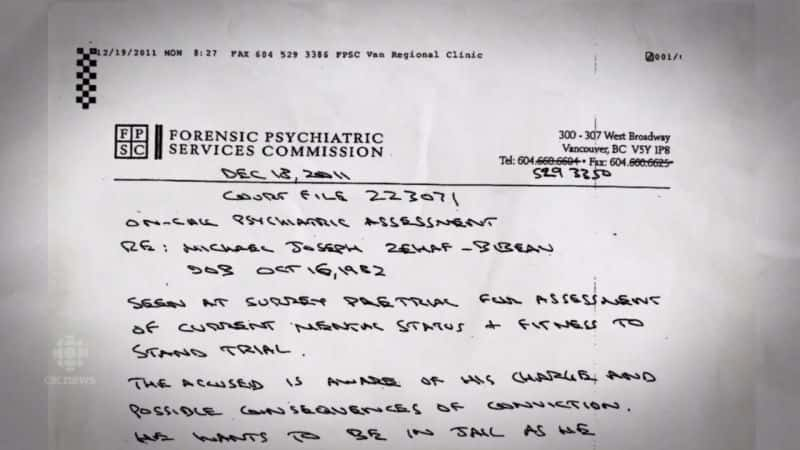 12/19/2011 MON 8:27 FAX 604 529 3386 FPSC Van Regional Clinic 001/
FP
SC
FORENSIC PSYCHIATRIC
SERVICES COMMISSION
300 - 307 West Broadway
Vancouver, BC V5Y 1P8
Tel: 604.660.6604 • Fax: 604.660.6625
529 3350
DEC 18, 2011
COURT FILE 223071
ON-CALL PSYCHIATRIC ASSESSMENT
RE: MICHAEL JOSEPH ZEHAF-BIBEAU
DOB OCT 16, 1982
SEEN AT SURREY PRETRIAL FOR ASSESSMENT
OF CURRENT MENTAL STATUS + FITNESS TO
STAND TRIAL.
THE ACCUSED IS AWARE OF HIS CHARGE AND
POSSIBLE CONSEQUENCES OF CONVICTION.
HE WANTS TO BE IN JAIL AS HE
CBCnews